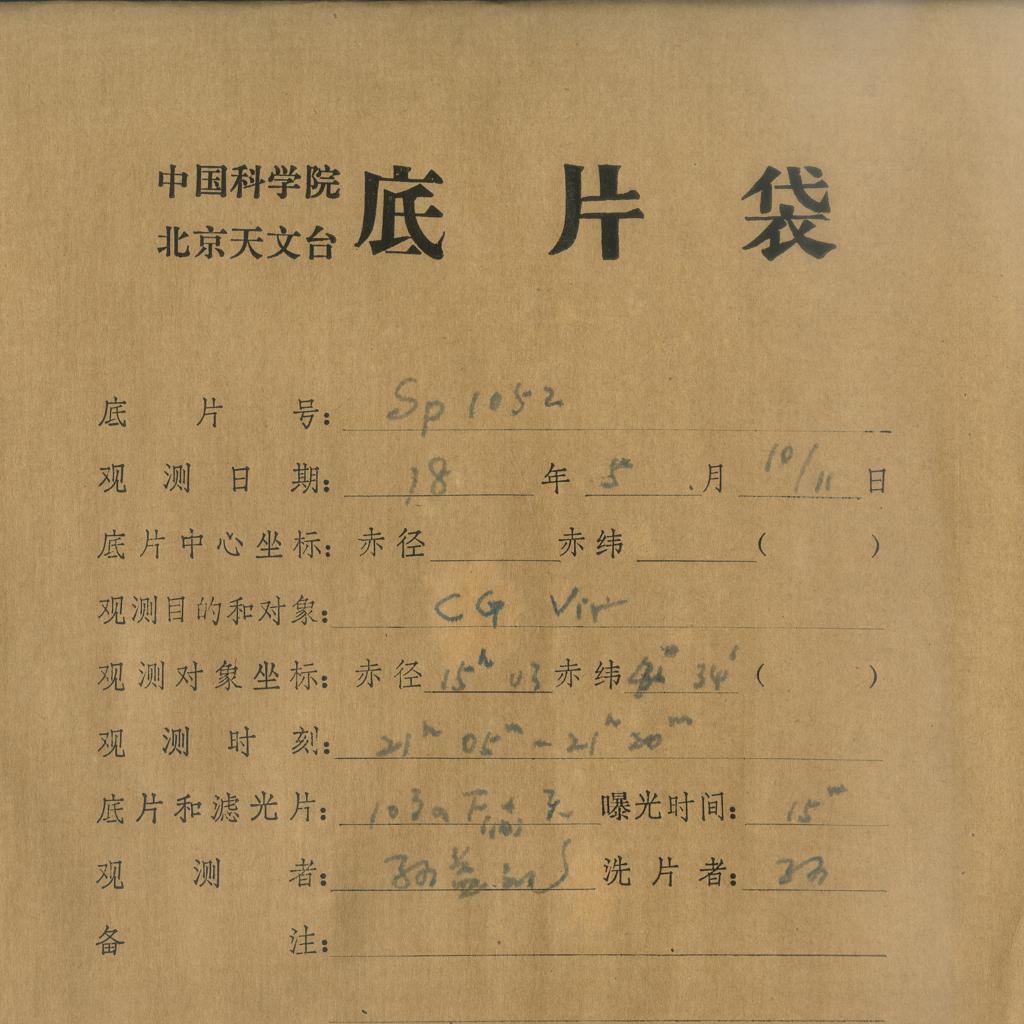 中国科学院
北京天文台
底片袋
底片号: Sp 1052
观测日期: 18 年 5 月 10/11 日
底片中心坐标: 赤径 赤纬 ( )
观测目的和对象: CG Vir
观测对象坐标: 赤径 15h 03 赤纬 34' ( )
观测时刻: 21h 05m - 21h 20m
底片和滤光片: 103a F + 无 曝光时间: 15m
观测者: 孙益 洗片者: 孙
备注: